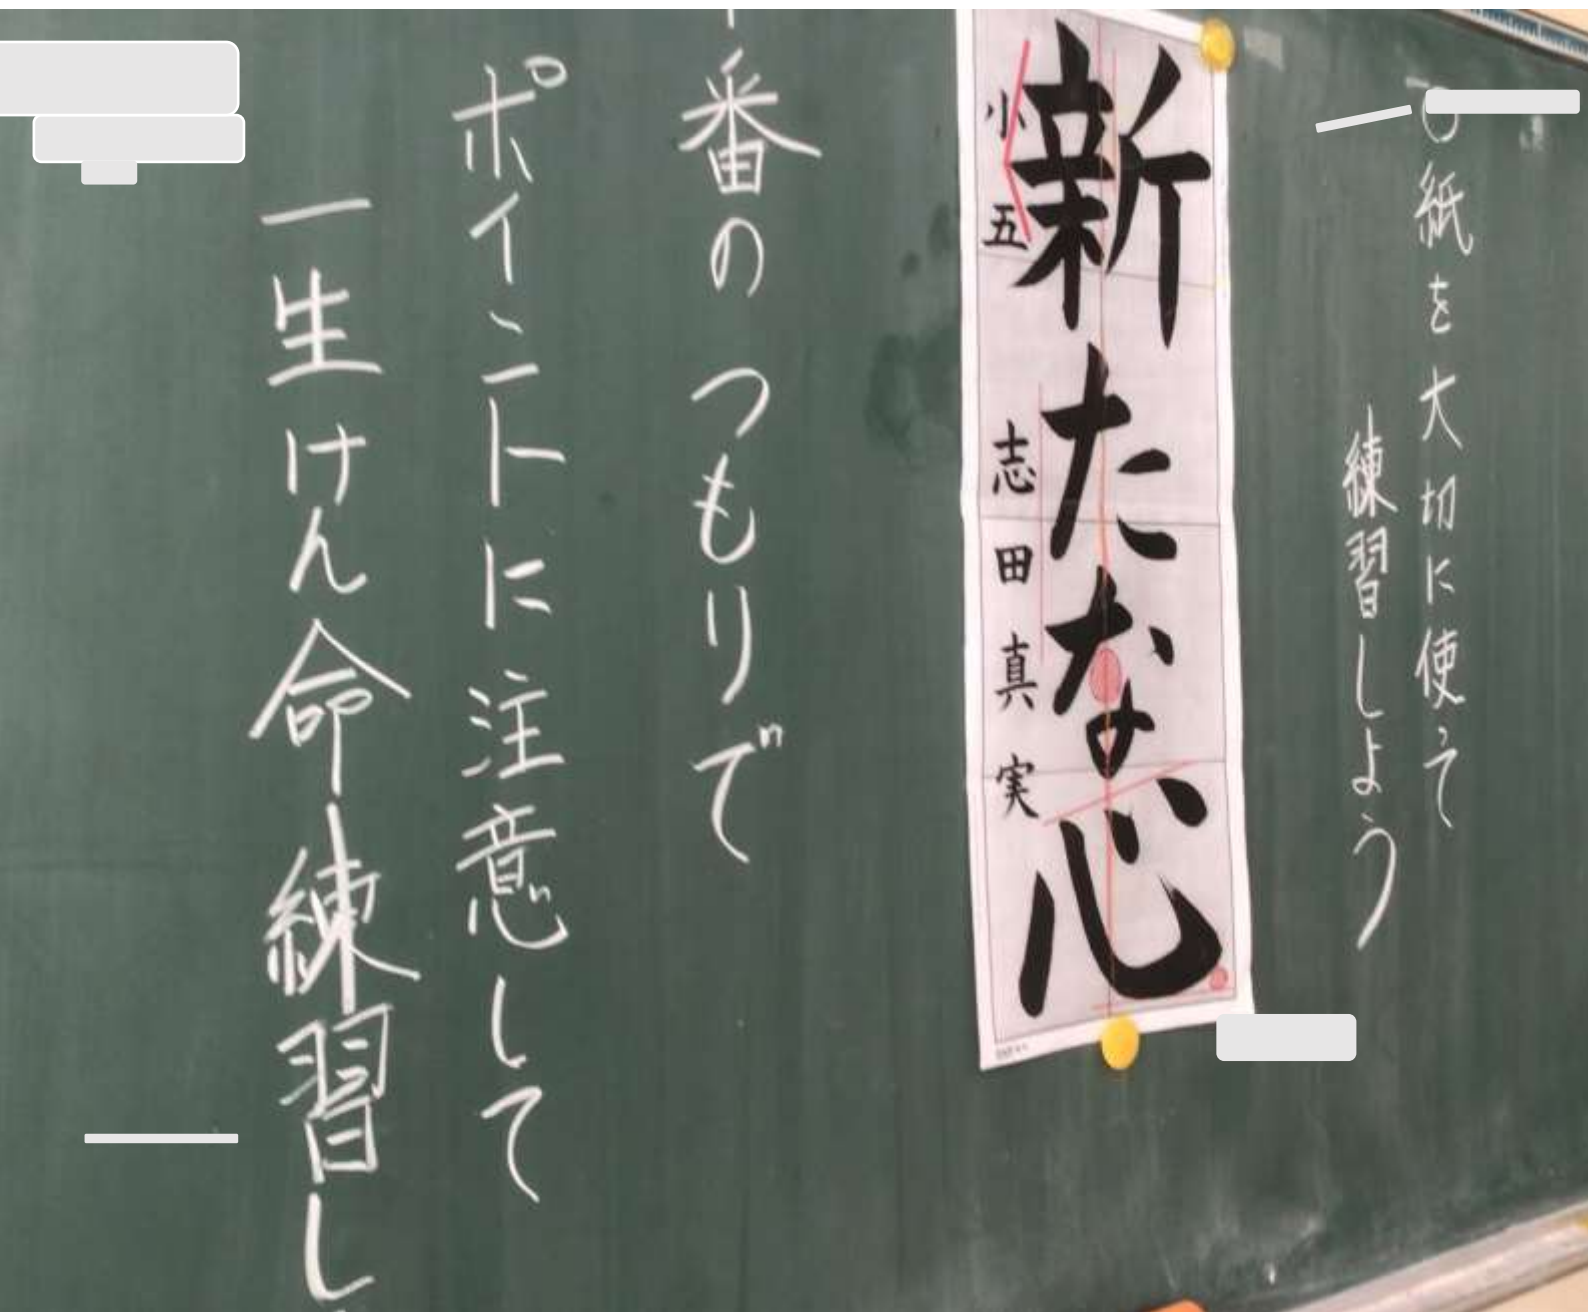 ○紙を大切に使って
練習しよう
新たな心
小五 志田真実
番のつもりで
ポイントに注意して
一生けん命練習し